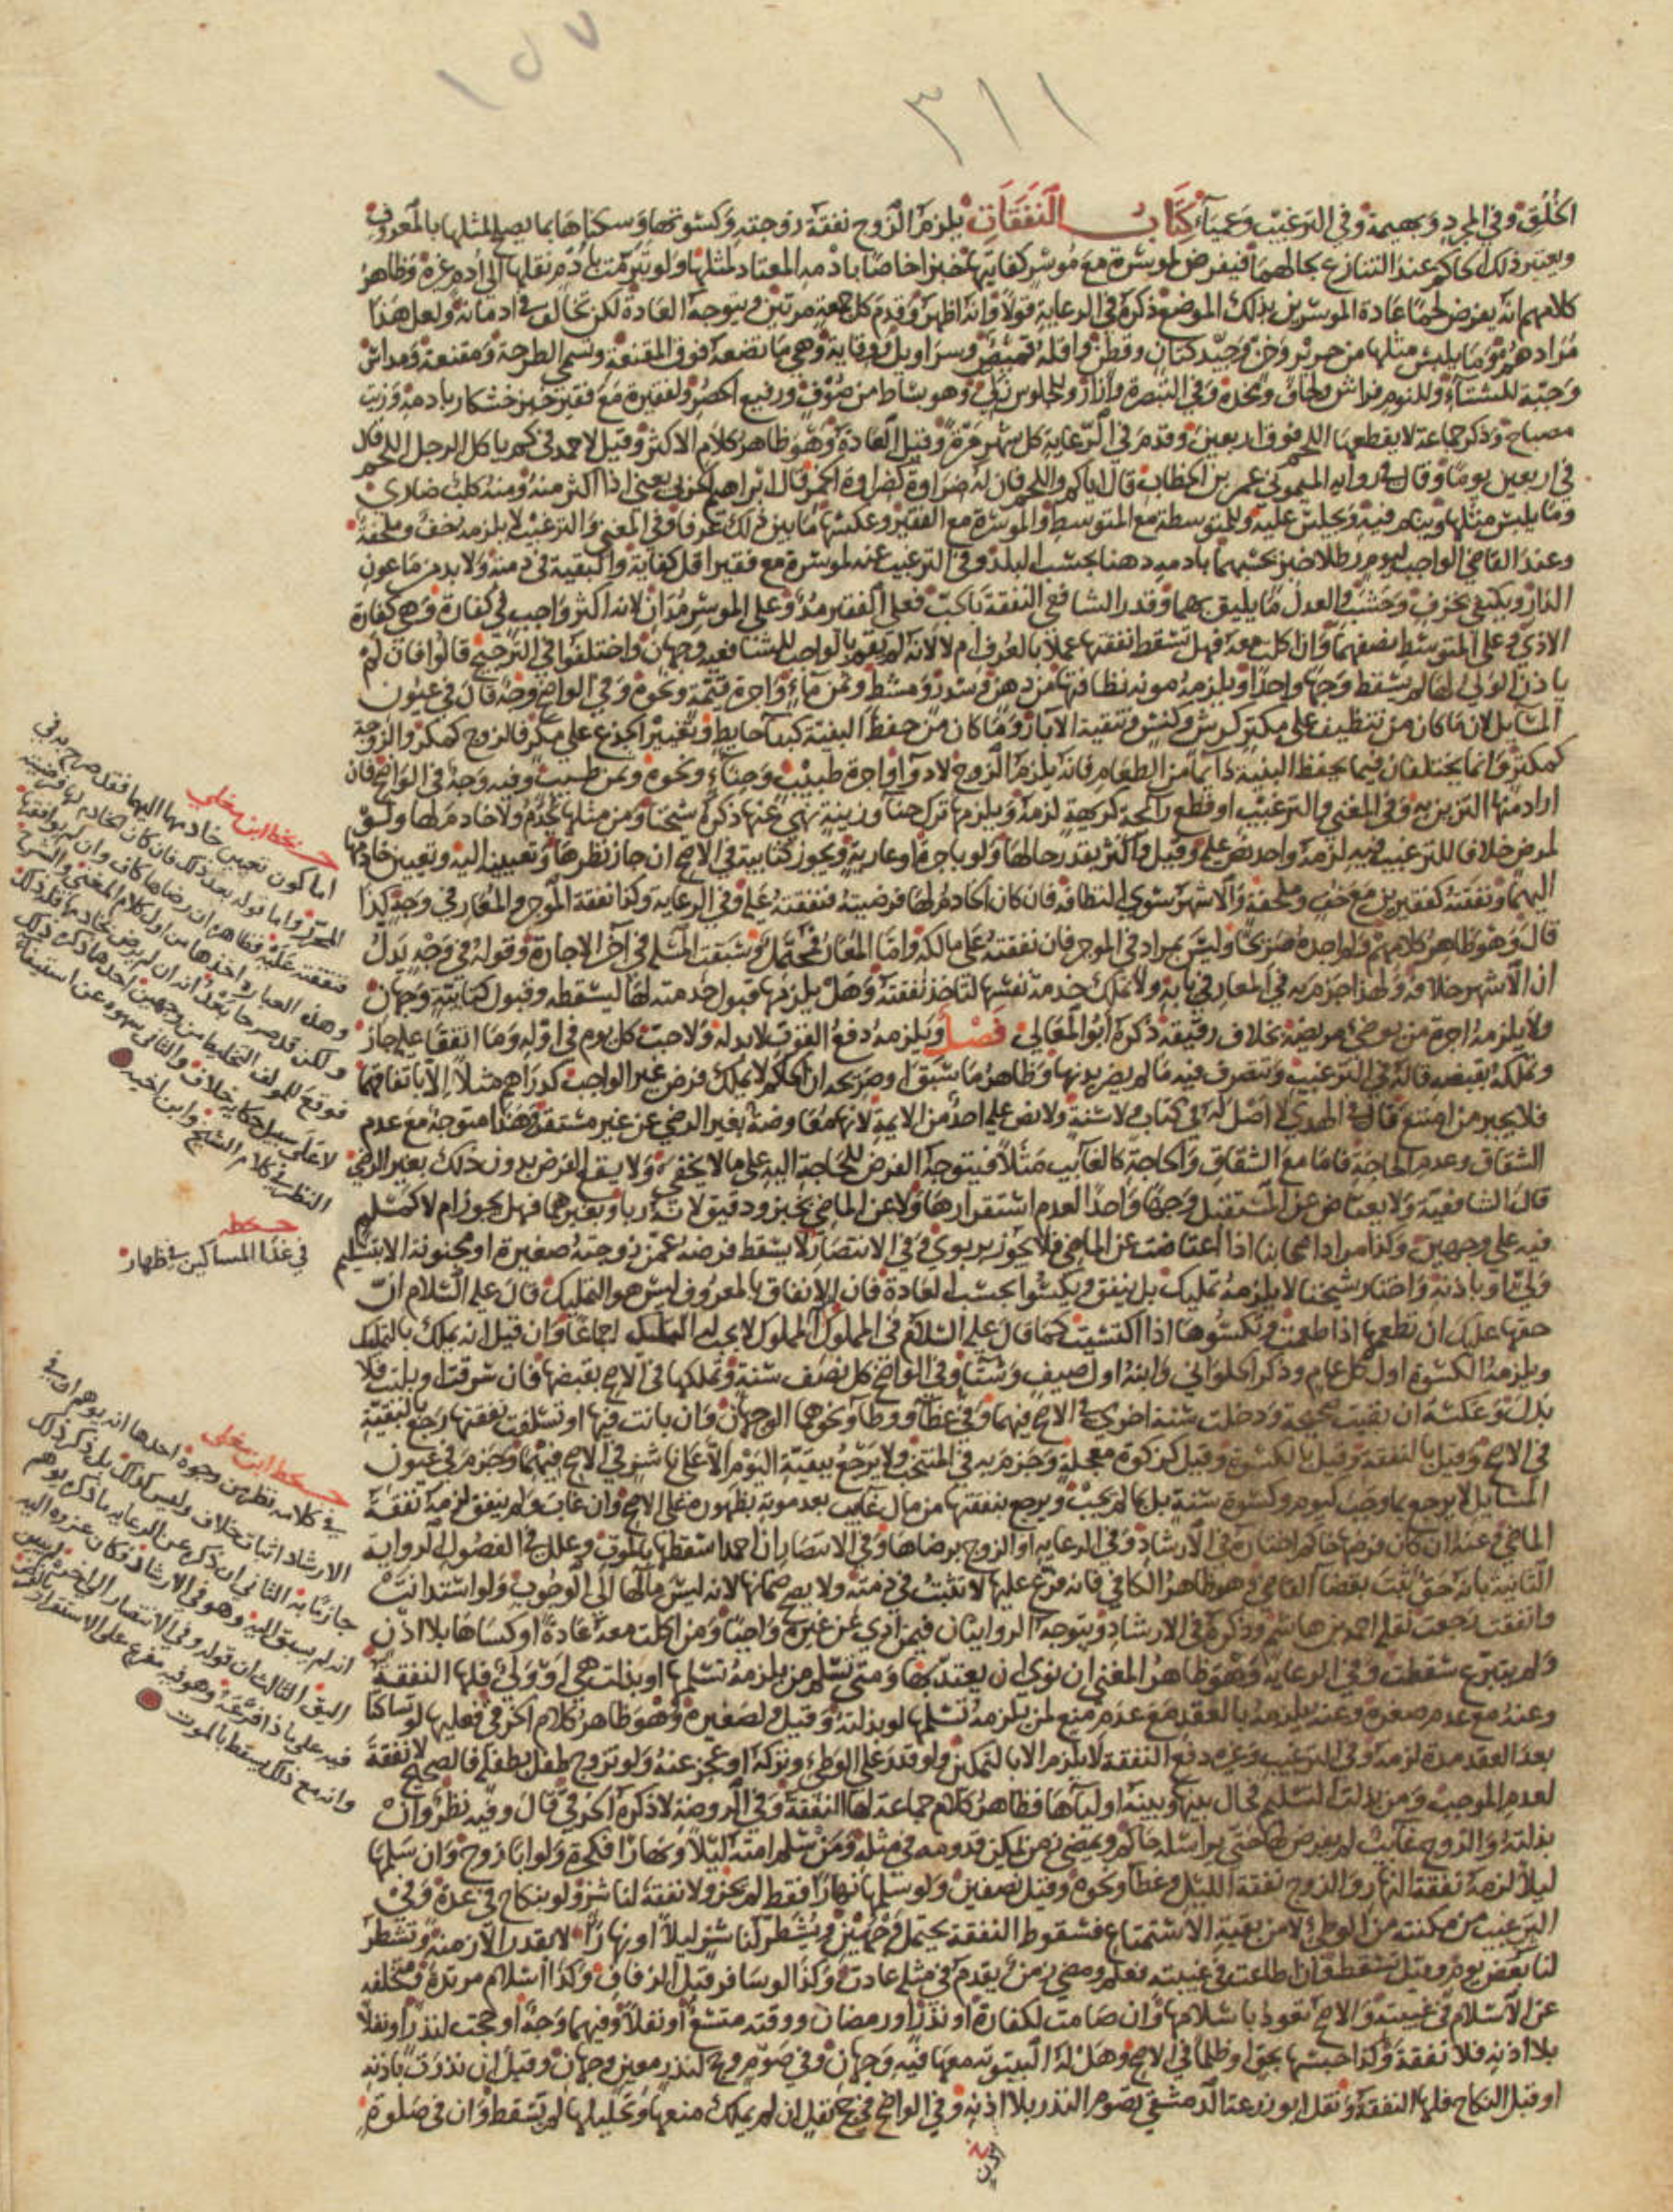 ١٥٧
٣١١
الخلق وفي المجرد وبهيمة وفي الترغيب وعمياء كتاب النفقات يلزم الزوج نفقة زوجته وكسوتها وسكناها بما يصلح لمثلها بالمعروف
ويعتبر ذلك الحاكم عند التنازع بحالهما فيفرض لموسرة مع موسر كفايتها خبزا خاصا بادمه المعتاد لمثلها ولو تبرمت بادم نقلها الى ادم غيره وظاهر
كلامهم انه يفرض لحما عادة الموسرين بذلك الموضع ذكره في الرعاية قولا وانه اظهر وقدم كل جمعة مرتين ويتوجه العادة لكن يخالف في ادمانه ولعل هذا
مرادهم وما يلبس مثلها من حرير وخز وجيد كتان وقطن واقله قميص وسراويل ووقاية وهي ما تضعه فوق المقنعة وتسمى الطرحة ومقنعة ومداس
وجبة للشتاء وللنوم فراش ولحاف ومخدة وفي التبصرة وازار وللجلوس زلي وهو بساط من صوف ورفيع الحصر ولفقيرة مع فقير خبز خشكار بادمه وزيت
مصباح وذكر جماعة لا يقطعها اللحم فوق اربعين وقدم في الرعاية كل شهر مرة وقيل العادة وهو ظاهر كلام الاكثر وقيل لاحمد في كم ياكل الرجل اللحم قال
في اربعين يوما وقال في رواية الميموني عمر بن الخطاب قال اياكم واللحم فان له ضراوة كضراوة الخمر قال ابراهيم الحربي يعني اذا اكثر منه ومنه كلب ضاري
وما يلبس مثلها وينام فيه ويجلس عليه وللمتوسطة مع المتوسط والموسرة مع الفقير وعكسها ما بين ذلك عرفا وفي المغني والترغيب لا يلزمه خف وملحفة
وعند القاضي الواجب ليوم رطلا خبز بحسبهما بادمه دهنا بحسب البلد وفي الترغيب عنه لموسرة مع فقير اقل كفاية والبقية في ذمته ولا بد من ماعون
الدار ويكتفي بخزف وخشب والعدل ما يليق بهما وقدر الشافعي النفقة بالحب فعلى الفقير مد وعلى الموسر مدان لانه اكثر واجب في كفارة وهي كفارة
الاذى وعلى المتوسط نصفهما وان اكلت معه فهل تسقط نفقتها عملا بالعرف ام لا لانه لم يقم بالواجب للشافعية وجهان واختلفوا في الترجيح قالوا فان لم
ياذن الولي لها لم يسقط وجها واحدا ويلزمه مونة نظافتها من دهن وسدر ومشط وثمن ماء واجرة قيمة ونحوه وفي الواضح وجه قال في عيون
المسايل لان ما كان من تنظيف على مكتر كرش وكنس وتنقية الابار وما كان من حفظ البنية كبناء حايط وتغيير الجذع على مكر فالزوج كمكر والزوجة
كمكتر وانما يختلفان فيما يحفظ البنية دائما من الطعام فانه يلزم الزوج لا دواء واجرة طبيب وحناء ونحوه وثمن طيب وفيه وجه في الواضح فان
اراد منها التزين به وفي المغني والترغيب او قطع رائحة كريهة لزمه ويلزمها ترك حنا وزينة نهى عنها ذكره شيخنا ومن مثلها يخدم ولا خادم لها ولو
لمرض خلافا للترغيب فيه لزمه واحد نص عليه وقيل واكثر بقدر حالها ولو باجرة او عارية ويجوز كتابية في الاصح ان جاز نظرها وتعيين اليه وتعيين خادمها
اليهما ونفقته كفقيرين مع خف وملحفة والاشهر سوى النظافة فان كان الخادم لها فرضيته فنفقته عليه وفي الرعاية وكذا نفقة الموجر والمعار في وجه كذا
قال وهو ظاهر كلامهم ولواحدة صريحا وليس بمراد في الموجر فان نفقته على مالكه واما المعار فمحتمل وسبقت المسلة في آخر الاجارة وقوله في وجه يدل
ان الاشهر خلافه ولهذا جزم به في المعار في بابه ولا تملك خدمة نفسها لتاخذ نفقته وهل يلزمها قبول خدمته لها ليسقطه وقبول كتابية وجهان
ولا يلزمه اجرة من يوضي مريضة بخلاف رقيقه ذكره ابو المعالي فصل ويلزمه دفع القوت لا بدله ولا حب كل يوم في اوله وما اتفقا عليه جاز
وتملكه بقبضه قاله في الترغيب وتتصرف فيه ما لم يضر بدنها وظاهر ما سبق او صريحه ان الحاكم لا يملك فرض غير الواجب كدراهم مثلا الا باتفاقهما
فلا يجبر من امتنع قال في الهدي لا اصل له في كتاب ولا سنة ولا نص عليه احد من الايمة لانها معاوضة بغير الرضى عن غير مستقر وهذا متوجه مع عدم
الشقاق وعدم الحاجة فاما مع الشقاق والحاجة كالغايب مثلا فيتوجه الفرض للحاجة اليه على ما لا يخفى ولا يقع الفرض بدون ذلك بغير الرضى
قال الشافعية ولا يعتاض عن المستقبل وجها واحدا لعدم استقرارها ولا عن الماضي بخبز ودقيق لانه ربا وبغيرهما فهل يجوز ام لا كمسلم
فيه على وجهين وكذا مراد اصحابنا اذا اعتاضت عن الماضي فلا يجوز بربوي وفي الانتصار لا يسقط فرضه عمن زوجته صغيرة او مجنونة الا بتسليم
ولي او باذنه واختار شيخنا لا يلزمه تمليك بل ينفق ويكسو بحسب العادة فان الانفاق بالمعروف ليس هو التمليك قال عليه السلام ان
حقها عليك ان تطعمها اذا طعمت وتكسوها اذا اكتسيت كما قال عليه السلام في المملوك المملوك لا يجب له التمليك اجماعا وان قيل انه يملك بالتمليك
ويلزمه الكسوة اول كل عام وذكر الحلواني وابنه اول صيف وشتاء وفي الواضح كل نصف سنة وتملكها في الاصح بقبضها فان سرقت او بليت فلا
بدل وعكسه ان بقيت صحيحة ودخلت سنة اخرى في الاصح فيهما وفي غطاء ووطاء ونحوهما الوجهان وان بانت فيها او تسلفت نفقتها رجع بالبقية
في الاصح وقيل بالنفقة وقيل بالكسوة وقيل كزكوة معجلة وجزم به في المنتخب ولا يرجع ببقية اليوم الا على ناشز في الاصح فيهما وجزم في عيون
المسايل لا يرجع بما وجب كيوم وكسوة سنة بل بما لم يجب ويرجع بنفقتها من مال غايب بعد موته بظهوره على الاصح وان غاب ولم ينفق لزمه نفقة
الماضي وعنه ان كان فرضها حاكم اختاره في الارشاد وفي الرعاية او الزوج برضاها وفي الانتصار ان احمد اسقطها بالموت وعلل في الفصول الرواية
الثانية بانه حق ثبت بقضاء القاضي وهو ظاهر الكافي فانه فرع عليها لا تثبت في ذمته ولا يصح ضمانها لانه ليس مالها الى الوجوب ولو استدانت
وانفقت رجعت نقله احمد بن هاشم وذكره في الارشاد ويتوجه الروايتان فيمن ادى عن غيره واجبا ومن اكلت معه عادة او كساها بلا اذن
ولم يتبرع سقطت وفي الرعاية وهو ظاهر المغني ان نوى ان يعتد بها ومتى تسلم من يلزمه تسلمها او بذلته هي او ولي فلها النفقة
وعنه مع عدم صغره وعنه يلزمه بالعقد مع عدم منع لمن يلزمه تسلمها لو بذلته وقيل ولصغيرة وهو ظاهر كلام الخرقي فعليها لو تساكنا
بعد العقد مدة لزمه وفي الترغيب وغيره دفع النفقة لا يلزم الا بالتمكين ولو قدر على الوطئ وتركه او عجز عنه ولو تزوج طفل بطفلة فالصحيح لا نفقة
لعدم الموجب ومن بذلت التسليم فحال بينها وبينه اولياها فظاهر كلام جماعة لها النفقة وفي الروضة لا ذكره الخرقي قال وفيه نظر وان
بذلته والزوج غايب لم يفرض لها حتى يراسله حاكم ويمضي زمن يمكن قدومه في مثله ومن سلم امته ليلا ونهارا فكحرة ولو ابا زوج وان سلمها
ليلا لزمه نفقة النهار والزوج نفقة الليل وغطاء ونحوه وقيل نصفين ولو سلمها نهارا فقط لم يجز ولا نفقة لناشز ولو بنكاح في عدة وفي
الترغيب من مكنته من الوطئ لا من بقية الاستمتاع فسقوط النفقة يحتمل وجهين ويشطر لناشز ليلا او نهارا لا بقدر الازمنة وتشطر
لنا بعض يوم وقيل تسقط فان اطاعت في غيبته فعلم ومضى زمن يقدم في مثله عادت وكذا لو سافر قبل الزفاف وكذا اسلام مرتدة ومتخلفه
عن الاسلام في غيبته والاصح تعود باسلامها وان صامت لكفارة او نذر او رمضان ووقته متسع او نفلا وفيهما وجه او حجت لنذر او نفلا
بلا اذنه فلا نفقة وكذا حبسها بحق او ظلما في الاصح وهل له البيتوته معها فيه وجهان وفي صوم وحج لنذر معين وجهان وقيل ان نذرت باذنه
او قبل النكاح فلها النفقة ونقل ابو زرعة الدمشقي تصوم النذر بلا اذنه وفي الواضح في حج نفل ان لم يملك منعها وتحليلها لم يسقط وان في صلوة
بخط ابن مغلي
اما كون تعيين خادمها اليهما فقد صرح به في
المحرر واما قوله بعد ذلك فان كان الخادم لها فرضيته
فنفقته عليه فظاهره ان رضاها كاف وان لم يوافقها
وهذه العبارة اخذها من اول كلام المغني والشرح
ولكن قد صرحا بعد انه ان لم يرض بخادمها فله ذلك
فوقع للمولف التخليط من وجهين احدها ذكره ذلك
لا على سبيل حكاية خلاف والثاني سهوه عن استيفاء
النظر في كلام الشيخ وابن اخيه
بخطه
في غذاء المساكين في ظهار
بخط ابن مغلي
في كلامه نظر من وجوه احدها انه يوهم ان في
الارشاد اثبات خلاف وليس كذلك بل ذكر ذلك
جازما به الثاني ان ذكره عن الرعاية ما ذكره يوهم
انه لم يسبق اليه وهو في الارشاد فكان عزوه اليه
اليق الثالث ان قوله وفي الانتصار الى اخره ليس
فيه على ماذا فرعه وهو فيه مفرع على الاستقرار بالفرض
وانه مع ذلك يسقط بالموت